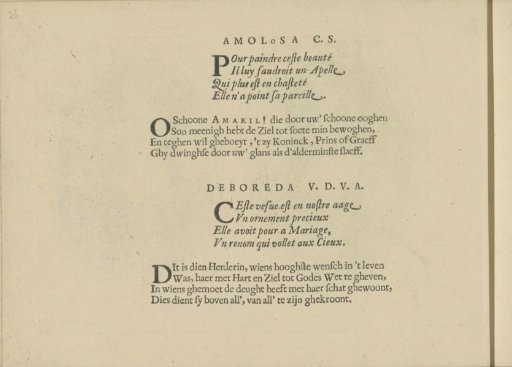 26
AMOLoSA C.S.
POur paindre ceste beauté
Il luy faudroit un Apelle,
Qui plus est en chasteté
Elle n'a point sa pareille.
O Schoone AMARIL! die door uw' schoone ooghen
Soo meenigh hebt de Ziel tot soete min bewoghen,
En teghen wil gheboeyt, 't zy Koninck, Prins of Graeff
Ghy dwinghse door uw' glans als d'alderminste slaeff.
DEBOREDA V.D.V.A.
CEste vefue est en nostre aage,
Vn ornement precieux
Elle avoit pour a Mariage,
Vn renom qui vollet aux Cieux.
DIt is dien Herderin, wiens hooghste wensch in 't leven
Was, haer met Hart en Ziel tot Godes Wet te gheven,
In wiens ghemoet de deught heeft met haer schat ghewoont,
Dies dient sy boven all', van all' te zijn ghekroont.